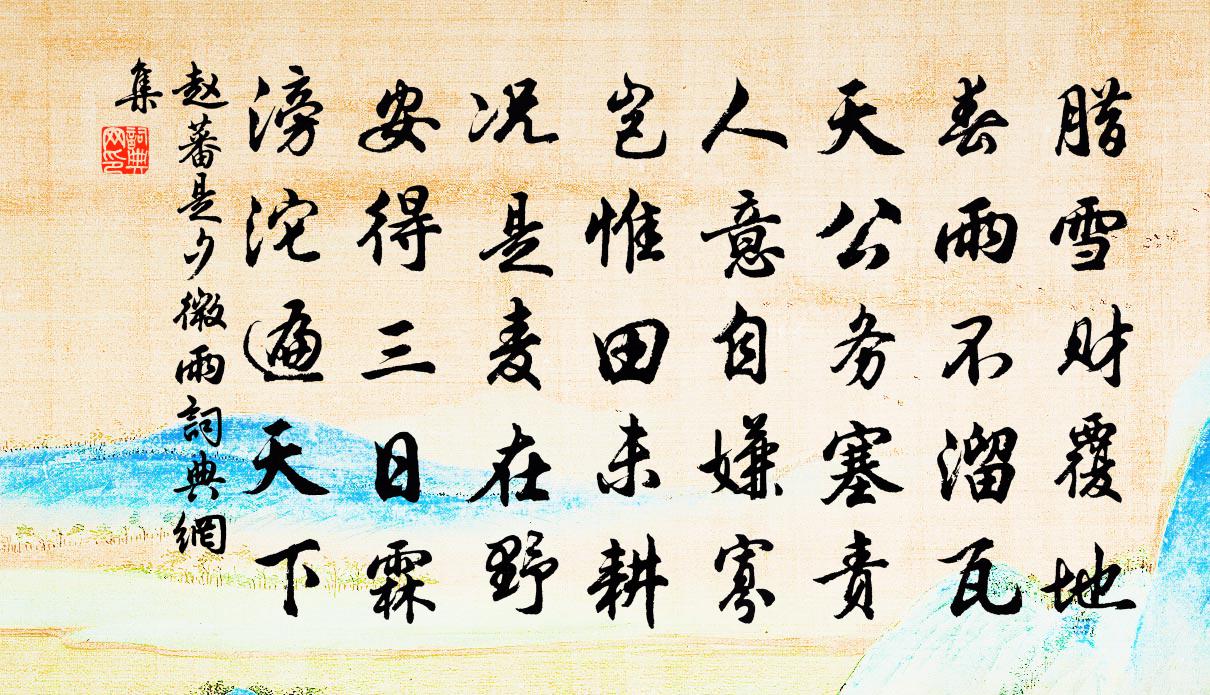 腊雪财覆地
春雨不溜瓦
天公务塞责
人意自嫌寡
岂惟田未耕
况是麦在野
安得三日霖
滂沱遍天下
赵蕃是夕微雨詞典網
集
詞典网印